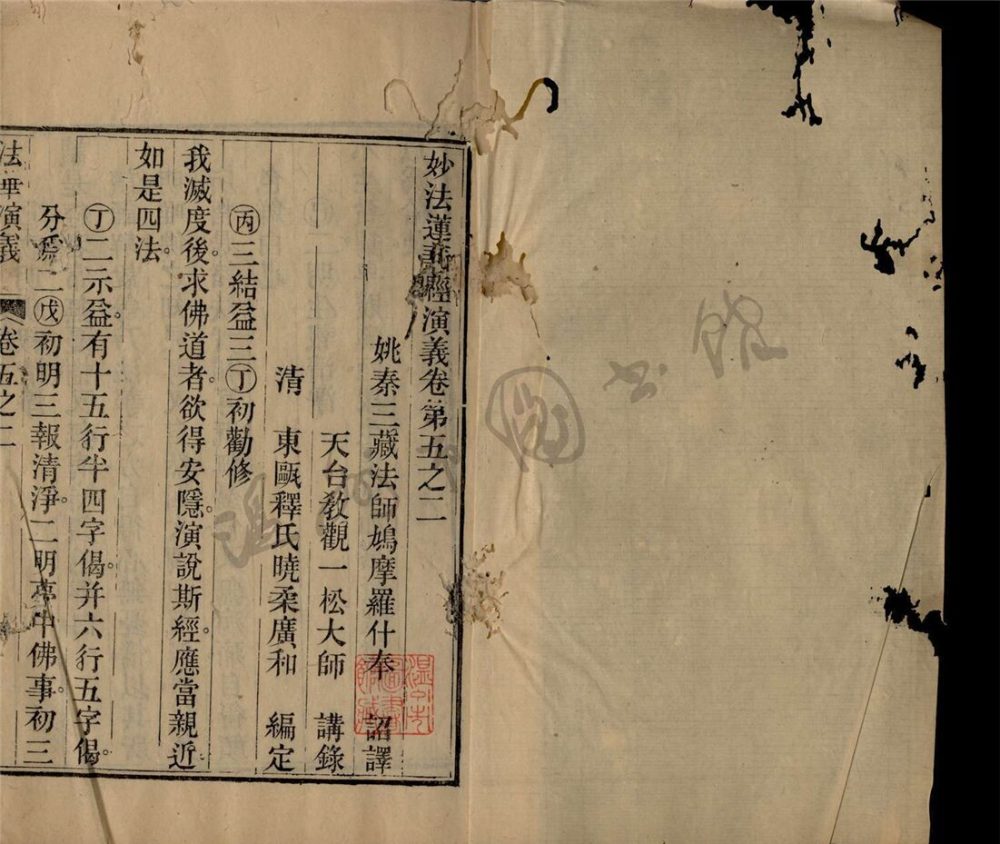 妙法蓮華經演義卷第五之二
姚秦三藏法師鳩摩羅什奉　詔譯
天台教觀一松大師　講錄
清　東甌釋氏曉柔廣和　編定
㊅三結益三㊉初勸修
我滅度後。求佛道者。欲得安隱。演說斯經。應當親近
如是四法。
丁二示益。有十五行半四字偈。并六行五字偈。
分爲二戊初明三報清淨。二明夢中佛事。初三
法華演義　卷五之二
溫州市圖書館藏
溫州圖書館